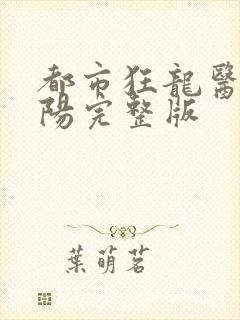 都市狂龍醫
陽完整版
葉萌茗